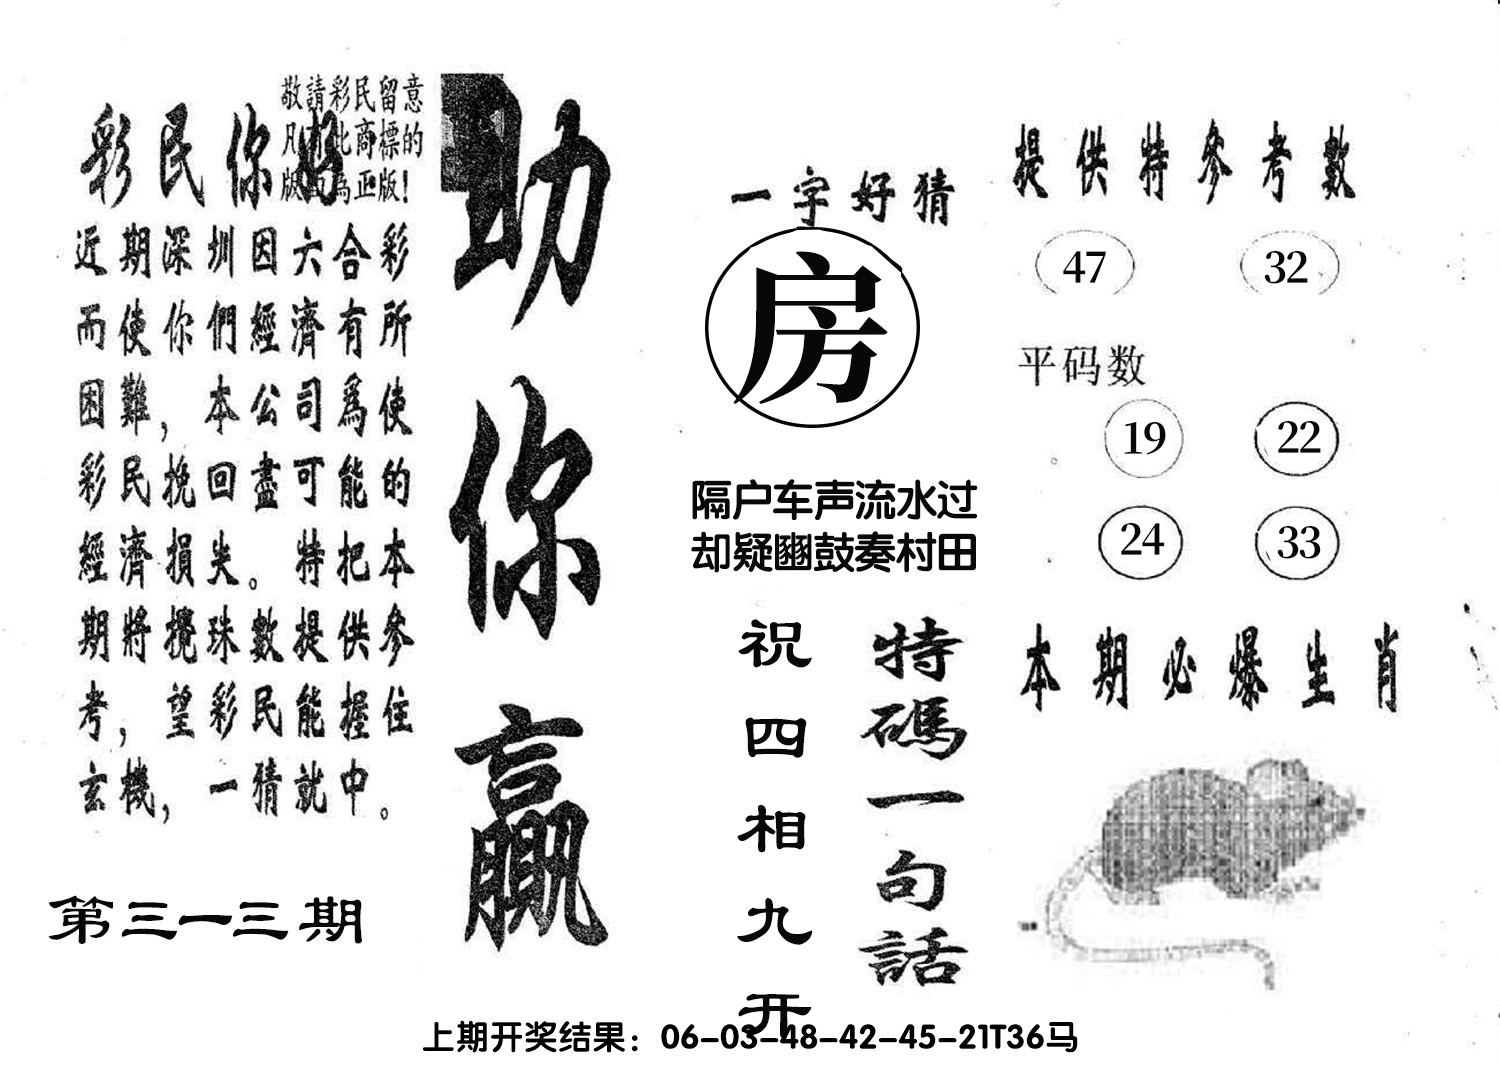 敬請彩民留意
凡有此商標的
版面為正版!
彩民你好
近期深圳因六合彩
而使你們經濟有所
困難，本公司爲使
彩民挽回盡可能的
經濟損失。特把本
期將攪珠數提供參
考，望彩民能握住
玄機，一猜就中。
第三一三期
助你贏
一字好猜
房
隔户车声流水过
却疑豳鼓奏村田
特碼一句話
祝四相九开
提供特參考數
47 32
平码数
19 22
24 33
本期必爆生肖
上期开奖结果：06-03-48-42-45-21T36马